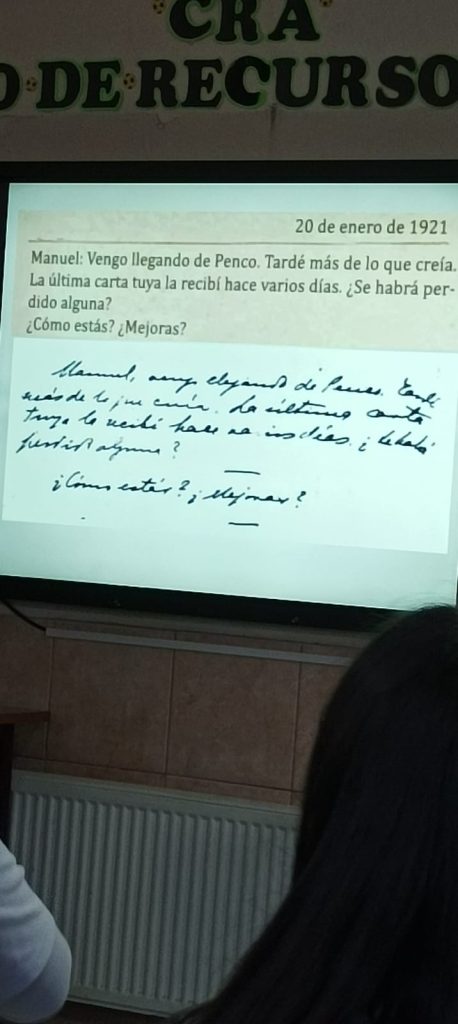 CRA
O DE RECURSO
20 de enero de 1921
Manuel: Vengo llegando de Penco. Tardé más de lo que creía.
La última carta tuya la recibí hace varios días. ¿Se habrá per-
dido alguna?
¿Cómo estás? ¿Mejoras?
Manuel, vengo llegando de Penco. Tardé
más de lo que creía. La última carta
tuya la recibí hace varios días. ¿Se habrá
perdido alguna?
¿Cómo estás? ¿Mejoras?